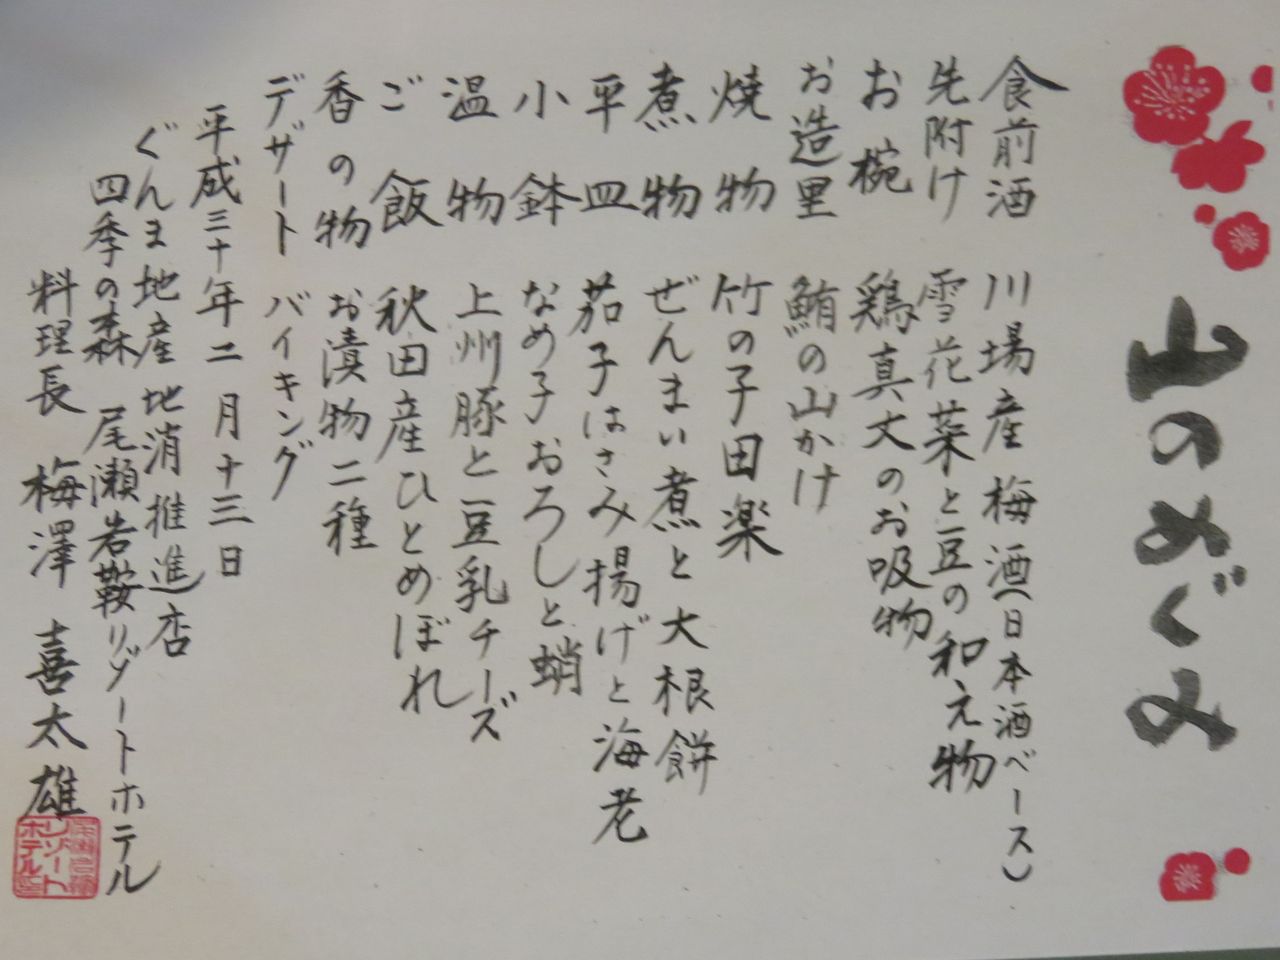 山のめぐみ
食前酒 川場産 梅酒(日本酒ベース)
先附け 雪花菜と豆の和え物
お椀 鶏真丈のお吸物
お造里 鮪の山かけ
焼物 竹の子田楽
煮物 ぜんまい煮と大根餅
平皿 茄子はさみ揚げと海老
小鉢 なめ子おろしと蛸
温物 上州豚と豆乳チーズ
ご飯 秋田産ひとめぼれ
香の物 お漬物二種
デザート バイキング
平成三十年二月十三日
ぐんま地産地消推進店
四季の森 尾瀬岩鞍リゾートホテル
料理長 梅澤喜太雄
リゾート
ホテル